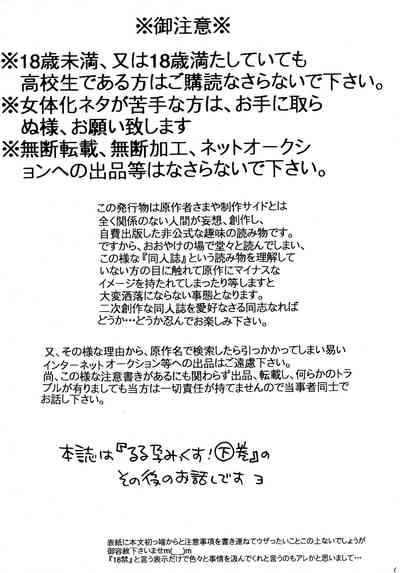 ※御注意※
※18歳未満、又は18歳満たしていても
高校生である方はご購読なさらないで下さい。
※女体化ネタが苦手な方は、お手に取ら
ぬ様、お願い致します
※無断転載、無断加工、ネットオークショ
ョンへの出品等はなさらないで下さい。
この発行物は原作者さまや制作サイドとは
全く関係のない人間が妄想、創作し、
自費出版した非公式な趣味の読み物です。
ですから、おおやけの場で堂々と読んでしまい、
この様な『同人誌』という読み物を理解して
いない方の目に触れて原作にマイナスな
イメージを持たれてしまったり等しますと
大変洒落にならない事態となります。
二次創作な同人誌を愛好なさる同志なれば
どうか…どうか忍んでお楽しみ下さい。
又、その様な理由から、原作名で検索したら引っかかってしまい易い
インターネットオークション等への出品はご遠慮下さい。
尚、この様な注意書きがあるにも関わらず出品、転載し、何らかのトラ
ブルが有りましても当方は一切責任が持てませんので当事者同士で
お話し下さい。
本誌は『るろ孕みくす!下巻』の
その後のお話しです ヨ
表紙に本文初っ端からと注意事項を書き連ねてウザったいことこの上ないでしょうが
御容赦下さいませm(__)m
『18禁』と言う表示だけで色々と事情を汲んでくれと言うのもアレかと思いまして…